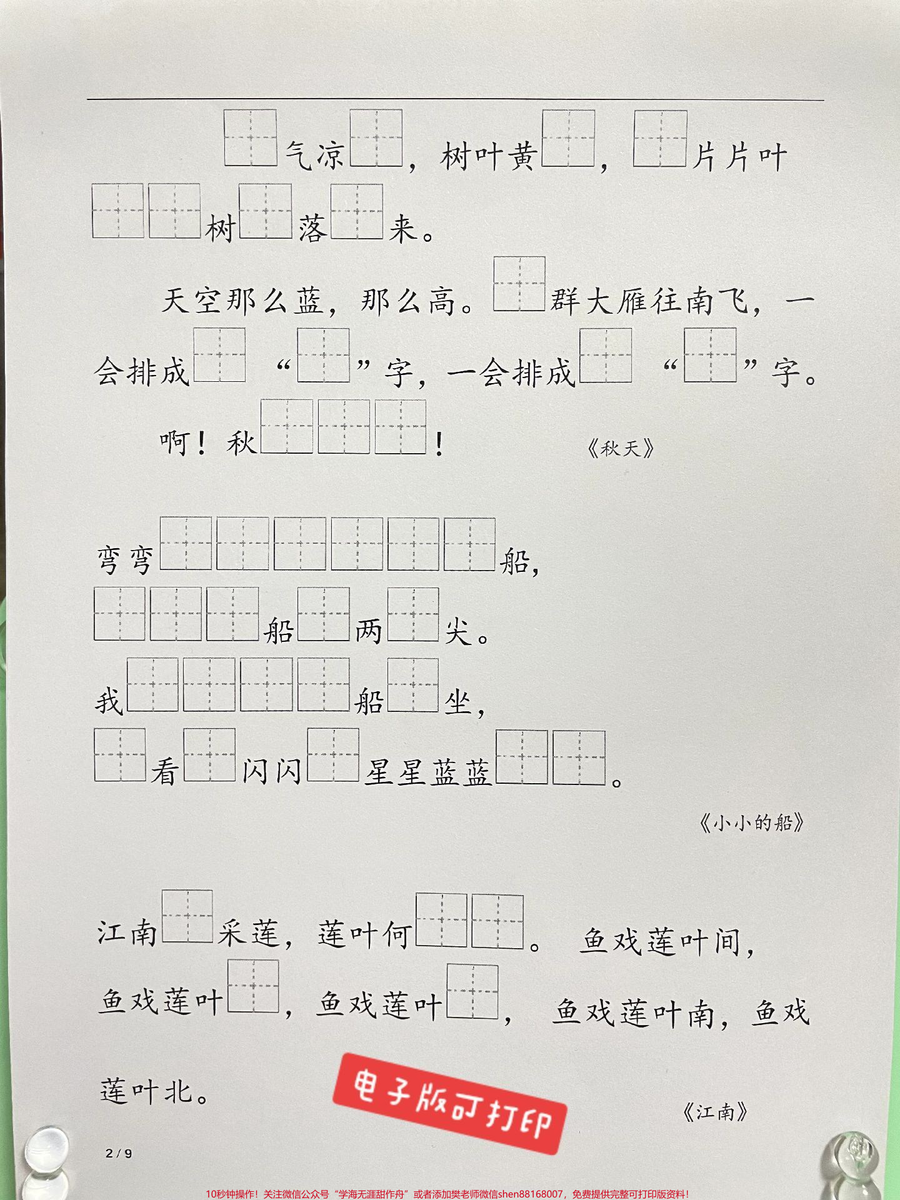 气凉，树叶黄，片片叶
树落来。
天空那么蓝，那么高。群大雁往南飞，一
会排成“”字，一会排成“”字。
啊！秋！《秋天》
弯弯船，
船两尖。
我船坐，
看闪闪星星蓝蓝。
《小小的船》
江南采莲，莲叶何。鱼戏莲叶间，
鱼戏莲叶，鱼戏莲叶，鱼戏莲叶南，鱼戏
莲叶北。
《江南》
电子版可打印
2/9
10秒钟操作！关注微信公众号“学海无涯甜作舟”或者添加樊老师微信shen88168007，免费提供完整可打印版资料！